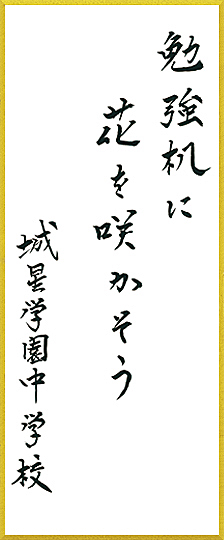 勉強机に
花を咲かそう
城星学園中学校